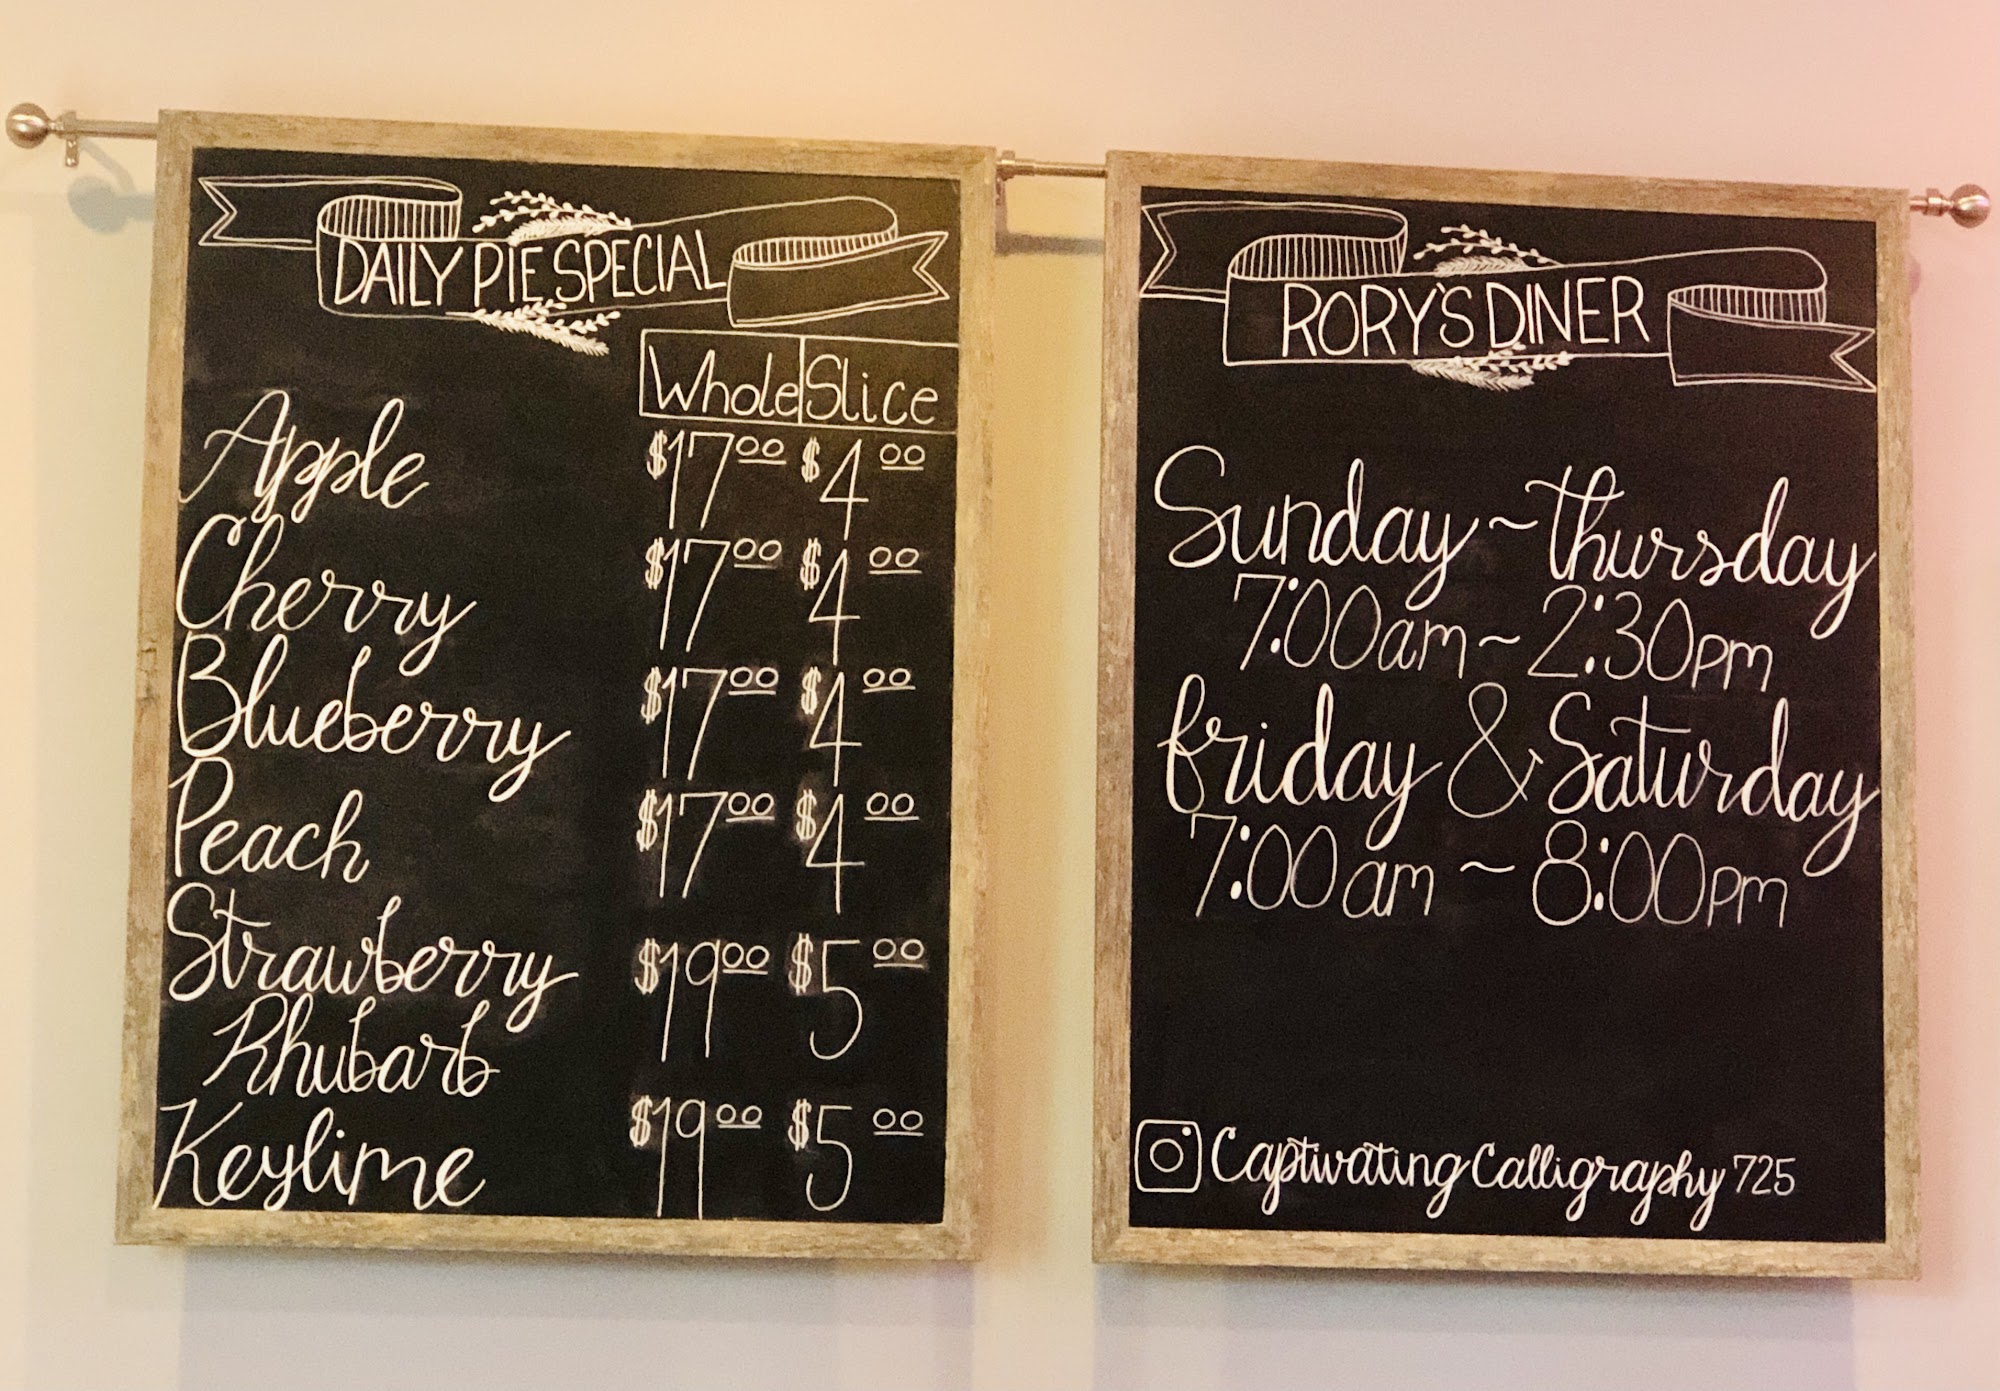 DAILY PIE SPECIAL
Whole Slice
Apple $17.00 $4.00
Cherry $17.00 $4.00
Blueberry $17.00 $4.00
Peach $17.00 $4.00
Strawberry $19.00 $5.00
Rhubarb
Keylime $19.00 $5.00
RORY'S DINER
Sunday ~ Thursday
7:00am ~ 2:30pm
friday & Saturday
7:00am ~ 8:00pm
Captivating Calligraphy 725